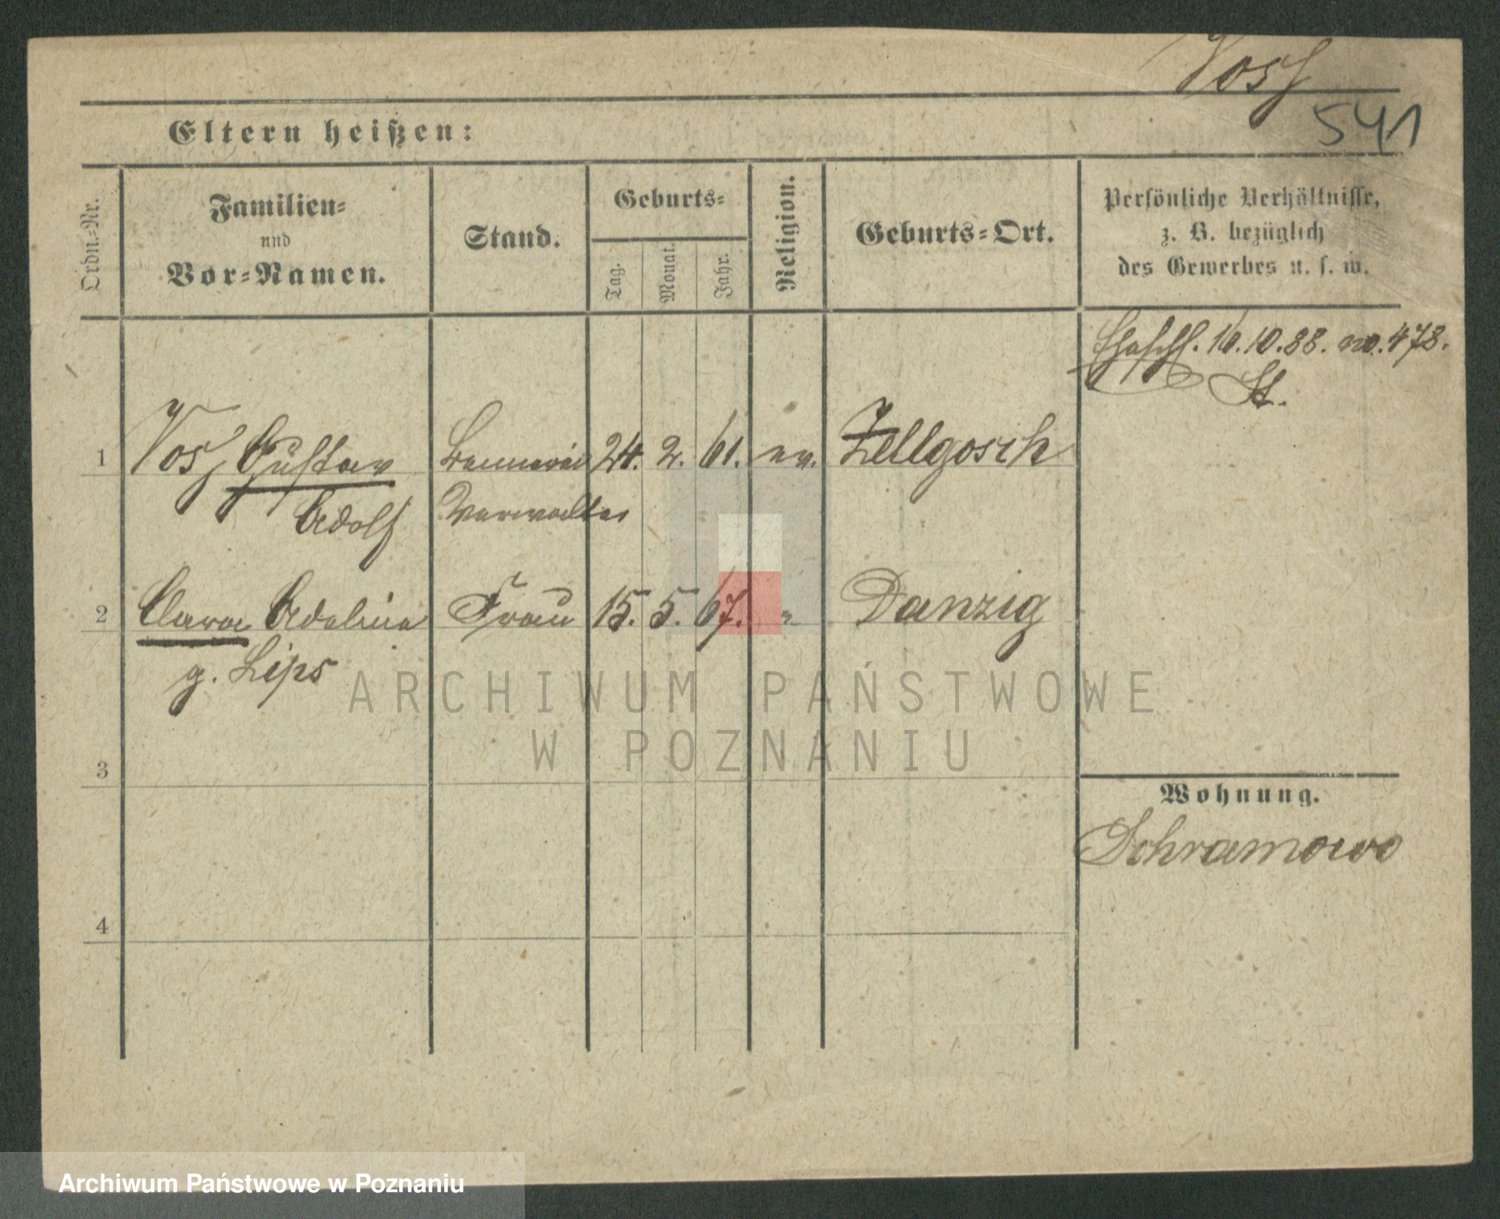 Voß
541
Eltern heißen:
Ordn.-Nr.
Familien-
und
Vor-Namen.
Stand.
Geburts-
Tag.
Monat.
Jahr.
Religion.
Geburts-Ort.
Persönliche Verhältnisse,
z. B. bezüglich
des Gewerbes u. s. w.
16.10.88. no. 478.
St.
1 Voß, Gustav 24. 2. 61. ev. Zellgosch
Adolf Verwalter
2 Clara Adeline Frau 15. 5. 67. " Danzig
g. Lips
ARCHIWUM PAŃSTWOWE
W POZNANIU
3
Wohnung.
Schramowo
4
Archiwum Państwowe w Poznaniu